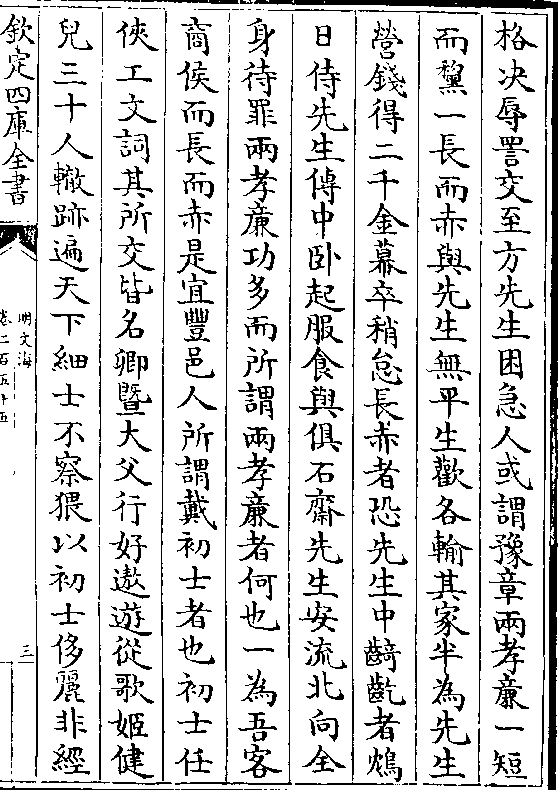 格决辱詈交至方先生困急人或謂豫章兩孝㢘一短
而黧一長而赤與先生無平生歡各輸其家半為先生
營錢得二千金募卒稍怠長赤者恐先生中齮齕者鴆
日侍先生傳中卧起服食與俱石齋先生安流北向全
身待罪兩孝㢘功多而所謂兩孝㢘者何也一為吾客
商侯而長而赤是宜豐邑人所謂戴初士者也初士任
俠工文詞其所交皆名卿暨大父行好遨遊從歌姬健
兒三十人轍跡遍天下細士不察猥以初士侈麗非經
欽定四庫全書
明文海
卷二百五十五
三